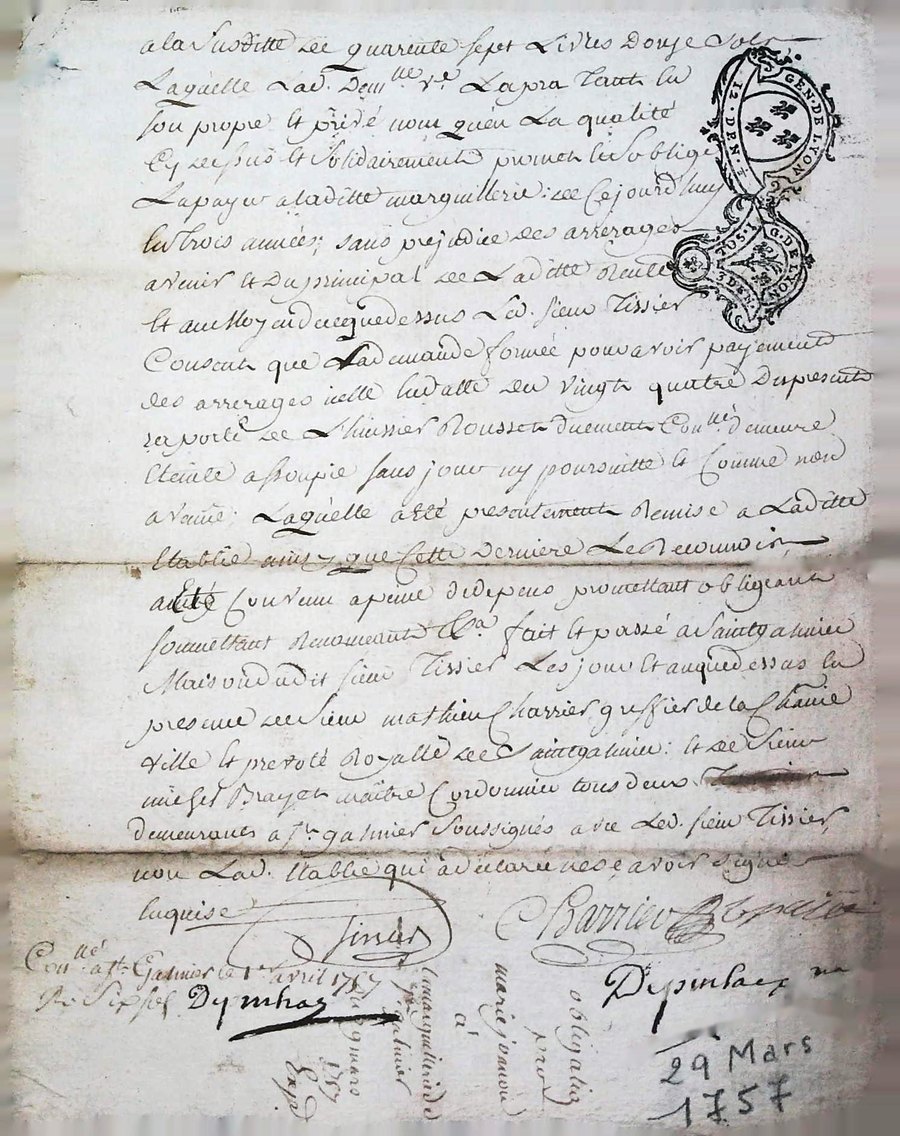 a la Susditte de quarente sept Livres douze Sols
Laquelle Lad. dem.lle v.e Lapra tant en
son propre et privé nom qu'en La qualité
cy dessus et solidairement promet et s'oblige
La payer a laditte marguillerie: de cejourdhuy
en trois années; sans prejudice des arrerages
avenir et du principal de Laditte Rente
Et au Moyen de ceque dessus Led. sieur Tissier
Consent que La demande formée pour avoir payement
des arrerages icelle en datte du vingt quatre du present
raporté de L'huissier Rousset duement Con.llé demeure
Eteinte assoupie sans jour ny poursuitte et comme non
avenue; Laquelle a Eté presentement Remise a Laditte
Etablie ainsy que cette derniere Le Reconnoit
a Eté Convenu a peine de depens promettant obligeant
soumettant Renonceant &a fait et passé a Saintgalmier
Maison dudit sieur Tissier Les jour et an que dessus en
presence de sieur mathieu Charrier greffier de la Chat.nie
ville et prevoté Royalle de Saintgalmier: et de sieur
michel Brayet maitre Cordonnier tous deux
demeurants a S.t galmier soussignés avec Led. sieur Tissier
non Lad. Etablie qui a declaré ne sçavoir signer
enquise
Tissier
Charrier
Con.llé a S.t Galmier le 1.er avril 1757
R. six sols Depinhac
Depinhac n.re
obligation
pour
marie
à
la marguillerie de
S.t galmier
29 mars
1757
Exp.d
GEN. DE LYON
12. DEN.
G. DE LION
3 DEN.
29 Mars
1757